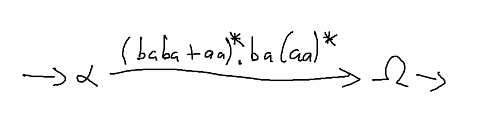 (baba+aa)*.ba(aa)*
→ α → Ω →